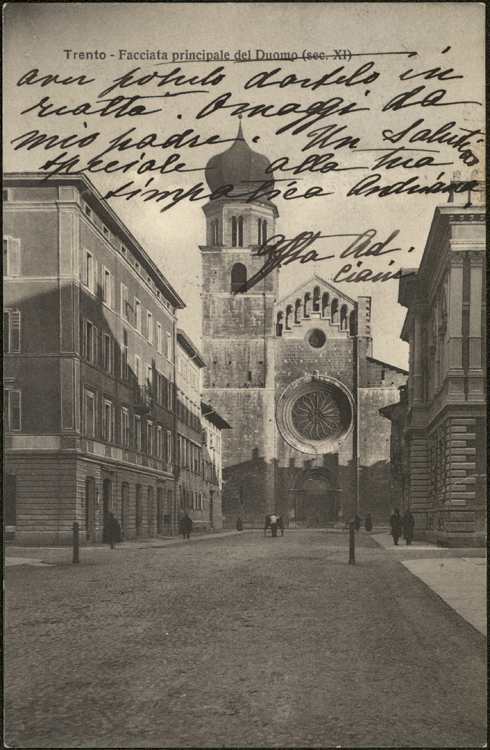 Trento - Facciata principale del Duomo (sec. XI)
aver potuto dartelo in
ritardo. Omaggi da
mio padre. Un Saluto
speciale alla tua
simpatica Andreina
Aff.ta Ad.
ciau